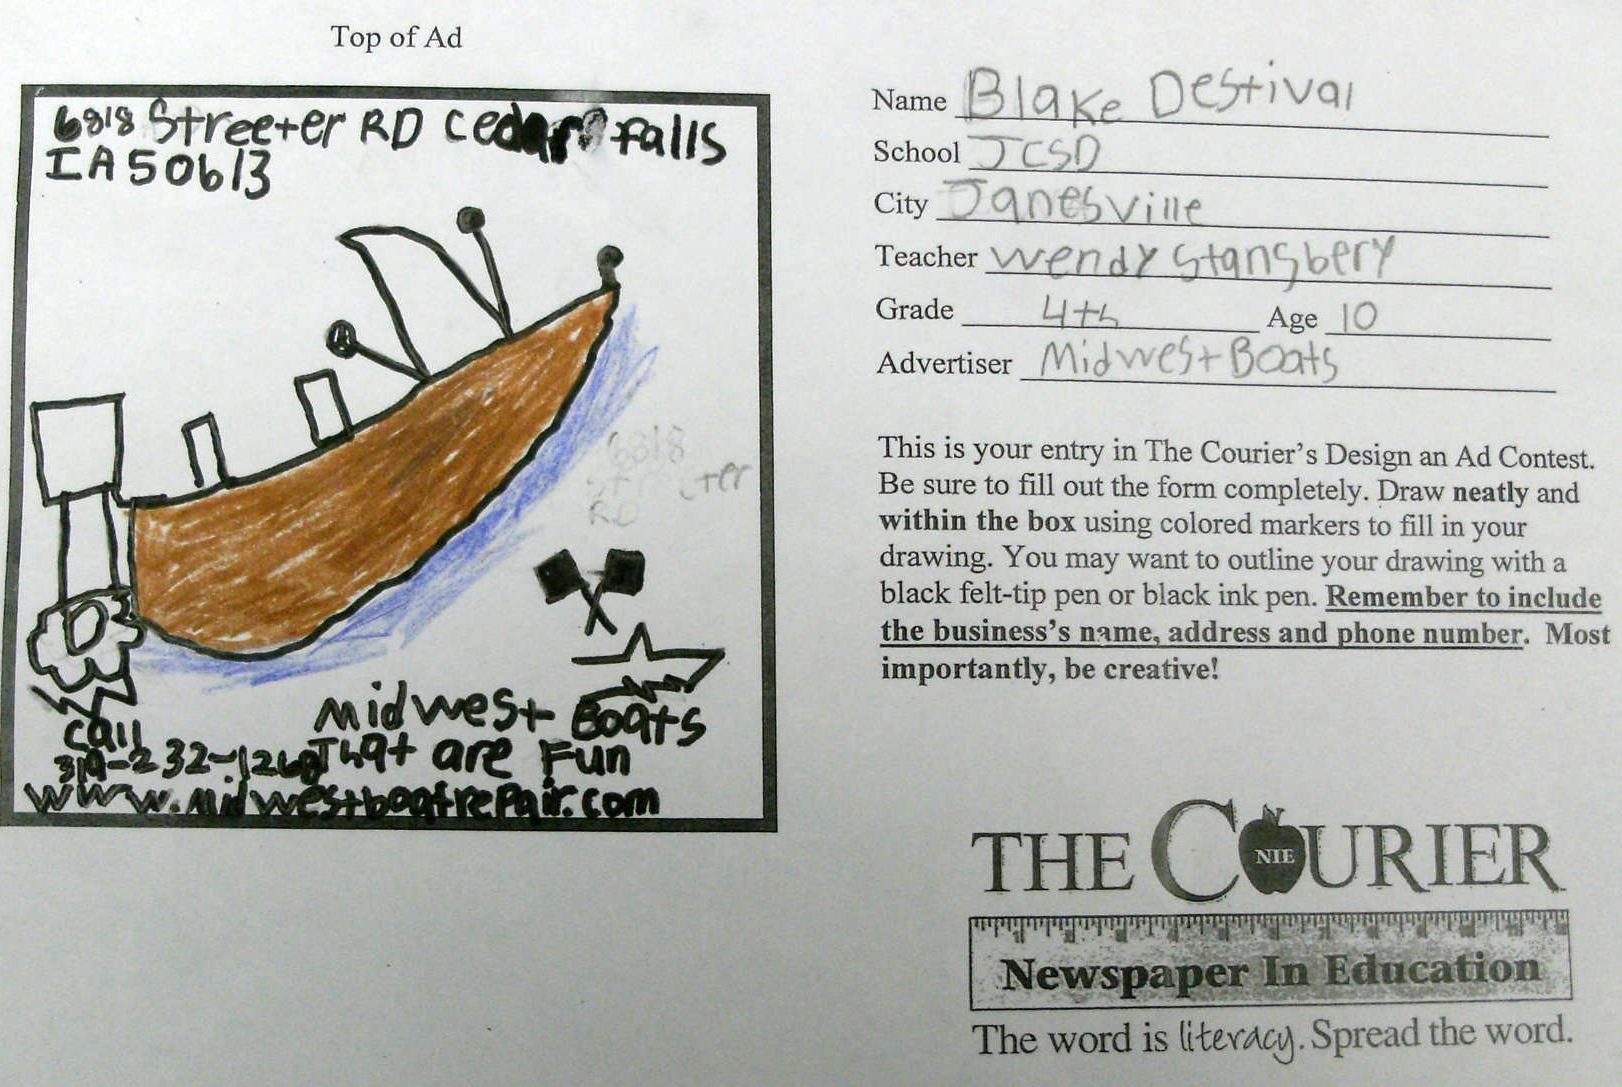 Top of Ad
6818 Streeter RD Cedar Falls
IA 50613
6818
RD
Call
Midwest Boats
That are Fun
www.midwestboatrepair.com
Name Blake Destival
School JCSD
City Janesville
Teacher Wendy Stansbery
Grade 4th Age 10
Advertiser Midwest Boats
This is your entry in The Courier's Design an Ad Contest.
Be sure to fill out the form completely. Draw neatly and
within the box using colored markers to fill in your
drawing. You may want to outline your drawing with a
black felt-tip pen or black ink pen. Remember to include
the business's name, address and phone number. Most
importantly, be creative!
THE COURIER
NIE
Newspaper In Education
The word is literacy. Spread the word.